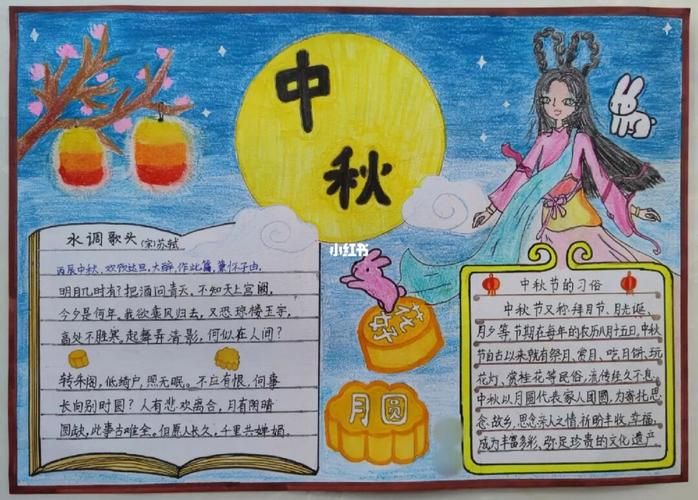 中秋
水调歌头 (宋)苏轼
丙辰中秋,欢饮达旦,大醉,作此篇,兼怀子由.
明月几时有?把酒问青天,不知天上宫阙,
今夕是何年.我欲乘风归去,又恐琼楼玉宇,
高处不胜寒.起舞弄清影,何似在人间?
转朱阁,低绮户,照无眠。不应有恨,何事
长向别时圆?人有悲欢离合,月有阴晴
圆缺,此事古难全.但愿人长久,千里共婵娟.
小红书
花好
月圆
中秋节的习俗
中秋节又称拜月节、月光诞、
月夕等,节期在每年的农历八月十五日,中秋
节自古以来就有祭月、赏月、吃月饼、玩
花灯、赏桂花等民俗,流传经久不息。
中秋以月圆代表家人团圆,为寄托思
念故乡,思念亲人之情,祈盼丰收、幸福,
成为丰富多彩、弥足珍贵的文化遗产。